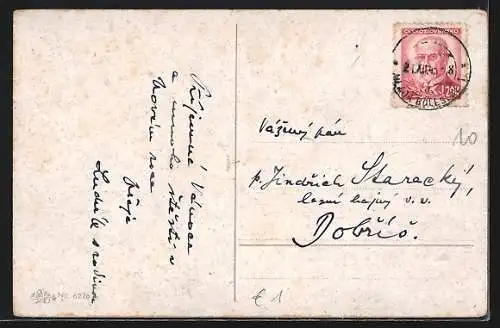 Příjemné Vánoce
a mnoho štěstí v
Novém roce
přeje
Luděk s rodinou
ČESKOSLOVENSKO
1,20
MLADÁ BOLESLAV
Vážený pán
p. Jindřich Staracký,
lesní hajný v. v.
Dobříš.
10
€ 1